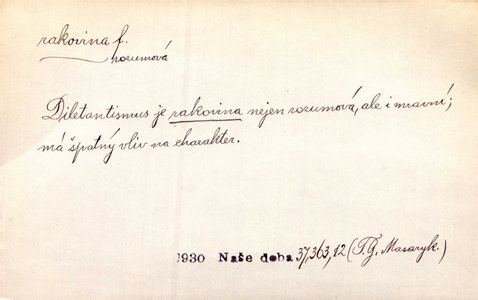 rakovina f.
rozumová
Diletantismus je rakovina nejen rozumová, ale i mravní;
má špatný vliv na charakter.
1930 Naše doba 37,363,12 (T.G. Masaryk.)